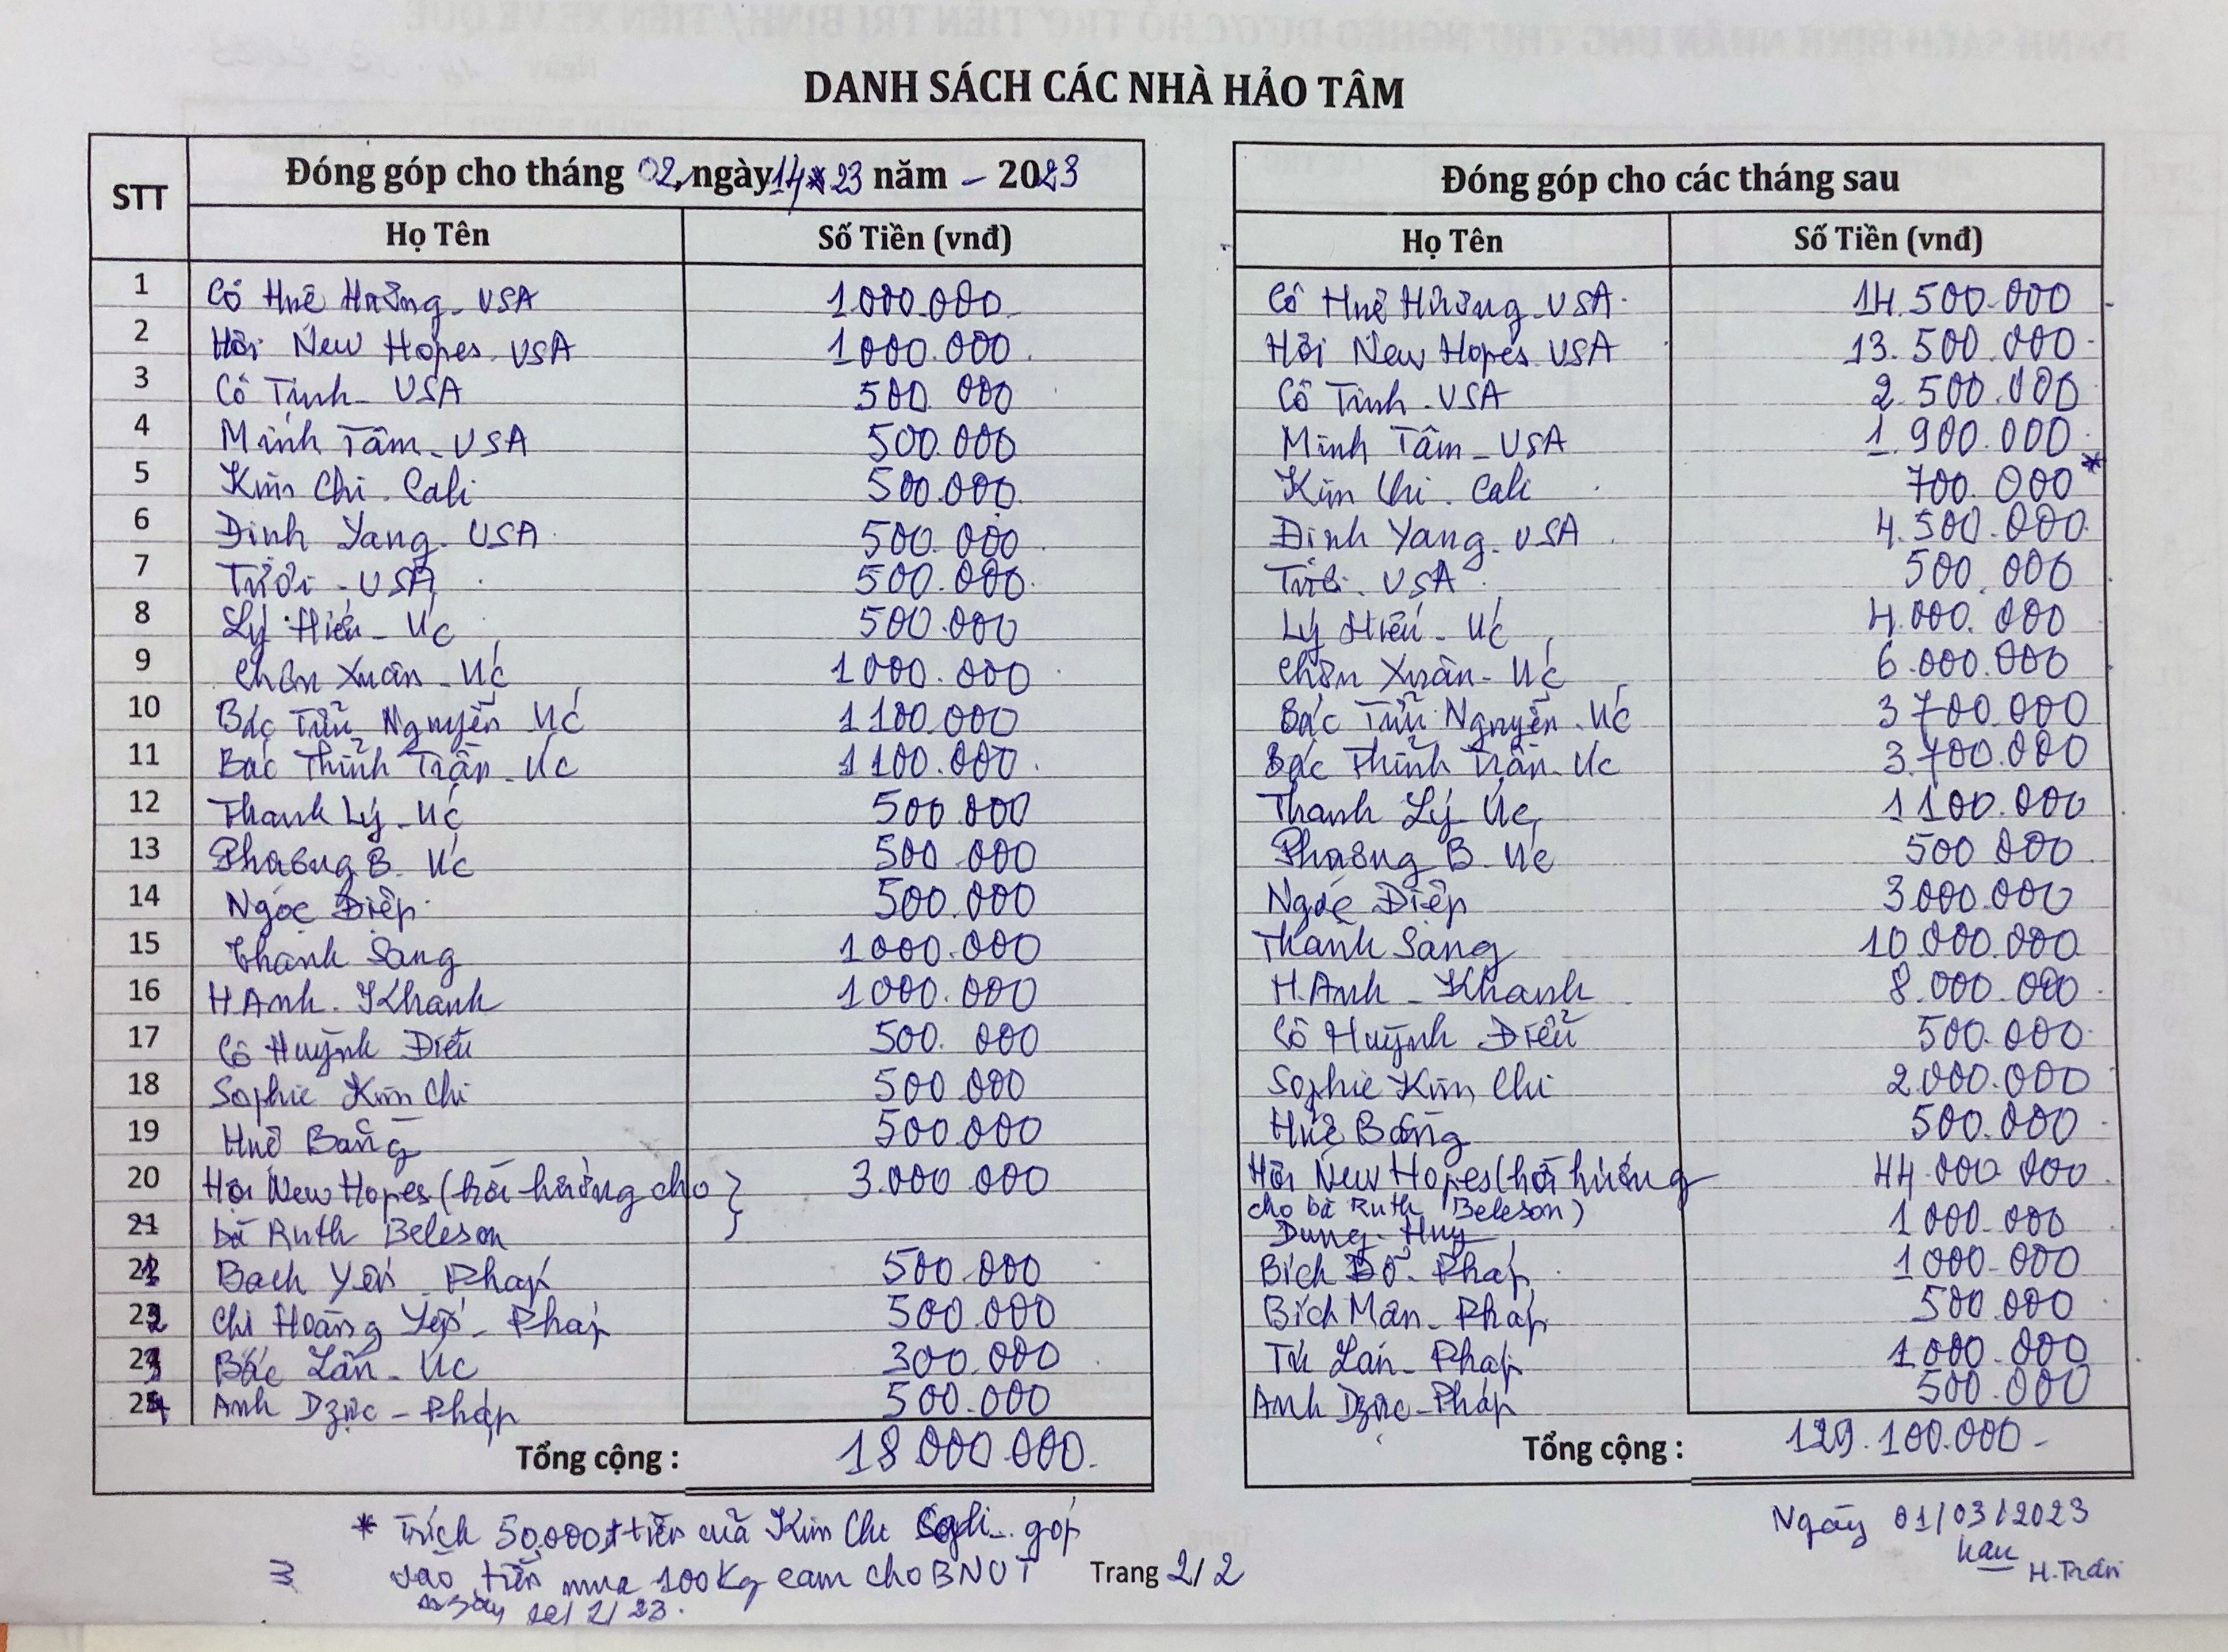 DANH SÁCH CÁC NHÀ HẢO TÂM
STT
Đóng góp cho tháng 02, ngày 14 & 23 năm - 2023
Đóng góp cho các tháng sau
Họ Tên Số Tiền (vnđ) Họ Tên Số Tiền (vnđ)
1 Cô Huê Hương - USA 1.000.000 Cô Huê Hương - USA 14.500.000
2 Hội New Hopes - USA 1000.000 Hội New Hopes USA 13.500.000
3 Cô Tịnh - USA 500 000 Cô Tịnh - USA 2.500.000
4 Minh Tâm - USA 500.000 Minh Tâm - USA 1.900.000
5 Kim Chi - Cali 500.000 Kim Chi - Cali 700.000 *
6 Đinh Yang - USA 500.000 Đinh Yang - USA 4.500.000
7 USA 500.000 USA 500.000
8 Lý Hiếu - Úc 500.000 Lý Hiếu - Úc 4.000.000
9 Chơn Xuân - Úc 1000.000 Chơn Xuân - Úc 6.000.000
10 Bác Nguyễn - Úc 1100.000 Bác Nguyễn - Úc 3700.000
11 Bác Thỉnh Trần - Úc 1100.000 Bác Thỉnh Trần - Úc 3.700.000
12 Thanh Lý - Úc 500.000 Thanh Lý Úc 1100.000
13 Phương B. Úc 500 000 Phương B - Úc 500 000
14 Ngọc Điệp 500.000 Ngọc Điệp 3.000.000
15 Thanh Sang 1000.000 Thanh Sang 10.000.000
16 H.Anh - Khanh 1000.000 H.Anh - Khanh 8.000.000
17 Cô Huỳnh Điểu 500.000 Cô Huỳnh Điểu 500.000
18 Sophie Kim Chi 500 000 Sophie Kim Chi 2.000.000
19 Huê Bằng 500.000 Huê Bằng 500.000
20 Hội New Hopes (hồi hướng cho 3.000 000 Hội New Hopes (hồi hướng 44.000 000
cho bà Ruth Beleson)
21 bà Ruth Beleson Dung - Huy 1000.000
21 Bạch Yến - Pháp 500.000 Bích Đỗ - Pháp 1000.000
22 Chị Hoàng Yến - Pháp 500.000 Bích Mân - Pháp 500.000
23 Bác Lân - Úc 300.000 Tú Lan - Pháp 1.000.000
24 Anh Dzục - Pháp 500.000 Anh Dzục - Pháp 500.000
Tổng cộng : 18.000.000. Tổng cộng : 129.100.000 -
* Trích 50.000đ tiền của Kim Chi Cali góp
vào tiền mua 100Kg cam cho BNUT
Trang 2/2
Ngày 01/03/2023
H.Trần